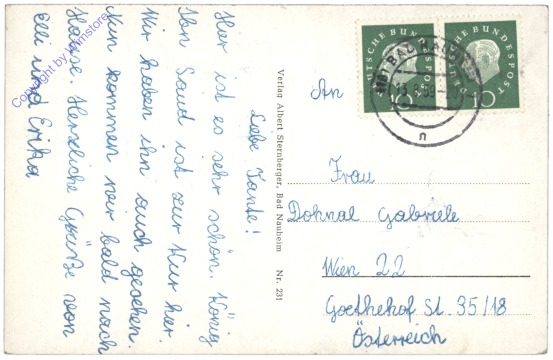 Liebe Tante!
Hier ist es sehr schön. König
Ibn Saud ist zur Kur hier.
Wir haben ihn auch gesehen.
Nun kommen wir bald nach
Hause. Herzliche Grüße von
Elli und Erika
Verlag Albert Sternberger, Bad Nauheim Nr. 231
DEUTSCHE BUNDESPOST
10
DEUTSCHE BUNDESPOST
10
BAD NAUHEIM
n
An
Frau
Dohnal Gabriele
Wien 22
Goethehof St. 35/18
Österreich
Copyright by hamstore